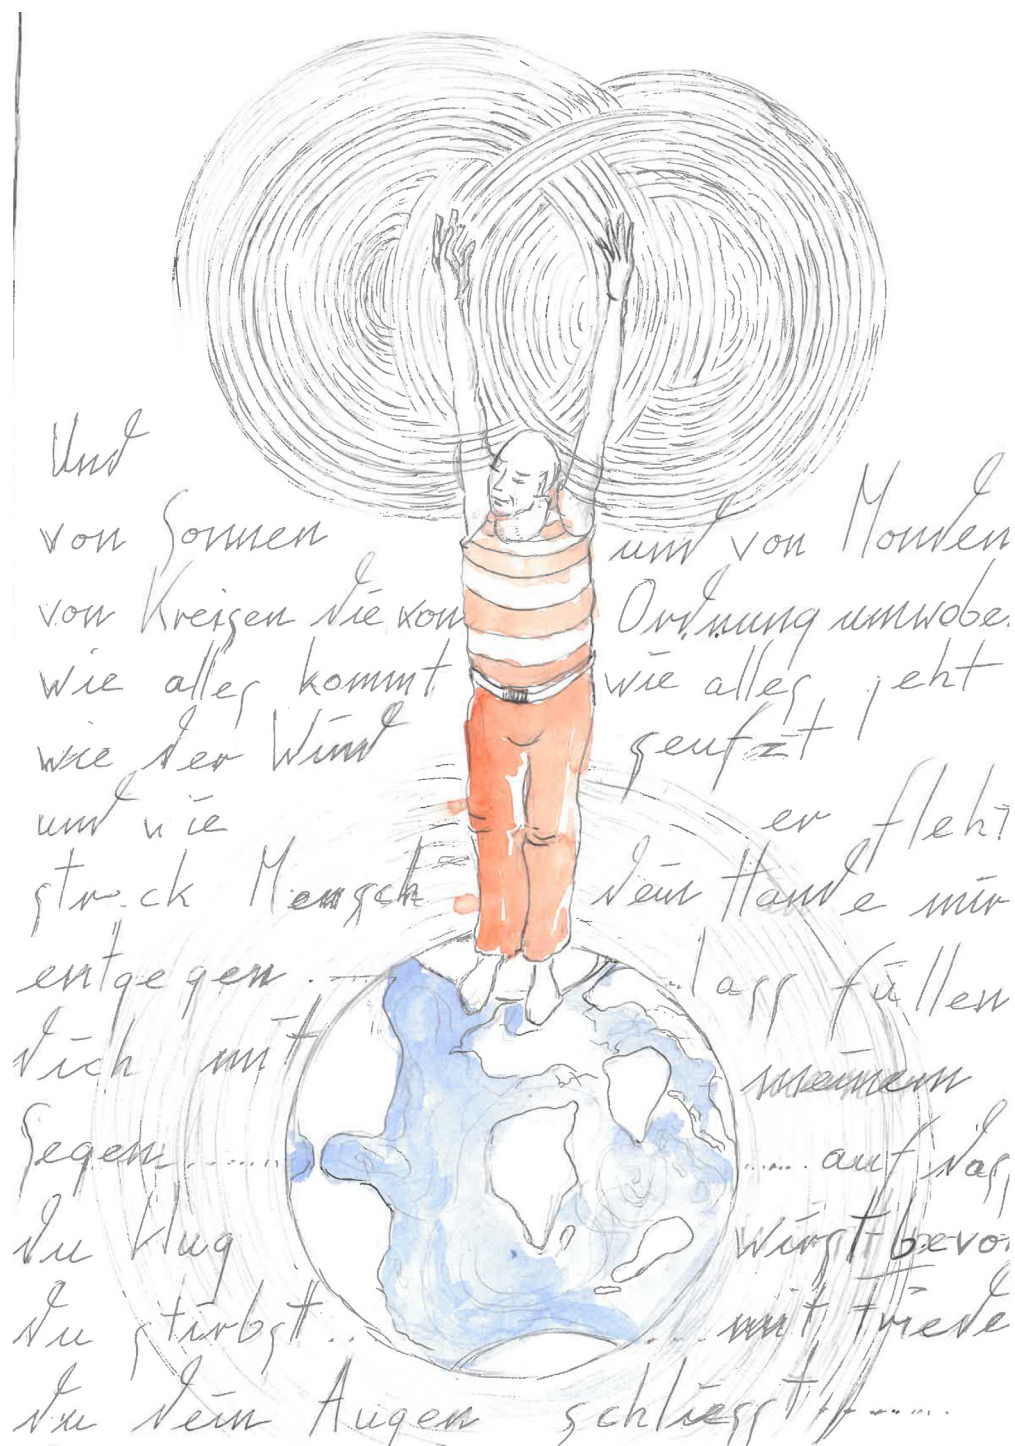 Und
von Sonnen und von Monden
von Kreisen die von Ordnung umwobe
wie alles kommt wie alles geht
wie der Wind seufzt
und wie er fleht
streck Mensch dein Hände mir
entgegen ... lass füllen
dich mit meinem
Segen......... ...... auf das
du klug wirst bevor
du stirbst.. .... mit Friede
du dein Augen schliesst.........